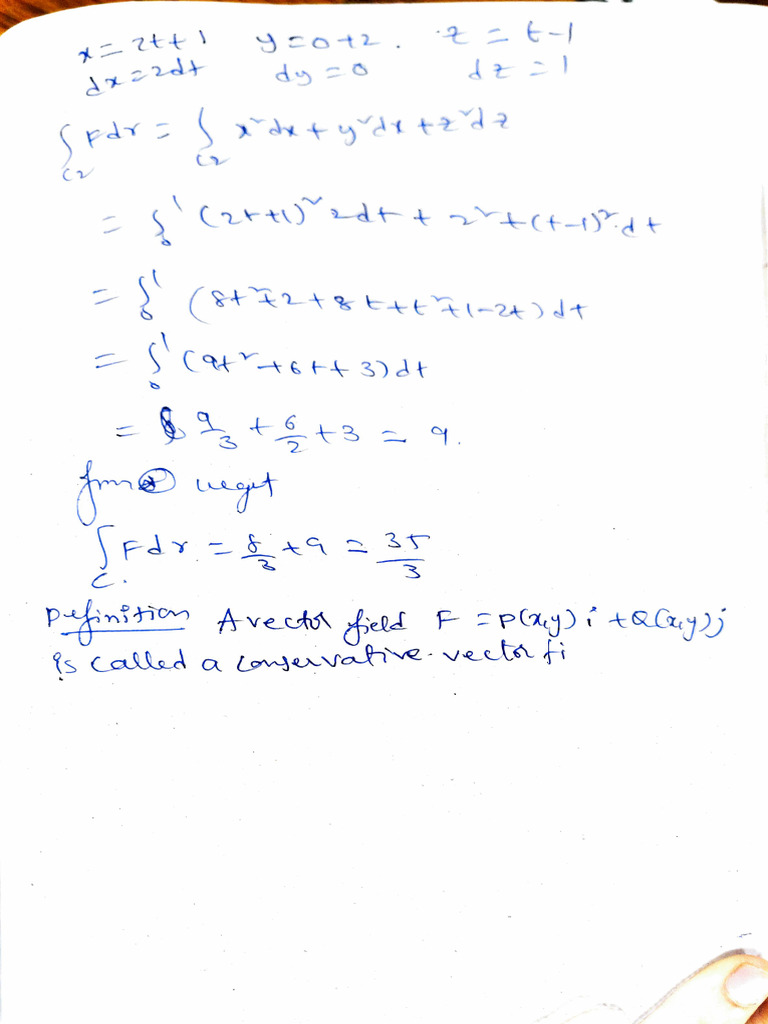 x = 2t+1 y = 0+2. z = t-1
dx = 2dt dy = 0 dz = 1
∫_{C2} Fdr = ∫_{C2} x²dx + y²dx + z²dz
= ∫_0^1 (2t+1)² 2dt + 2² + (t-1)².dt
= ∫_0^1 (8t²+2+8t+t²+1-2t)dt
= ∫_0^1 (9t²+6t+3)dt
= 9/3 + 6/2 + 3 = 9.
from weget
∫_C. Fdr = 8/3 + 9 = 35/3
Definition A vector field F = P(x,y)i + Q(x,y)j
is called a conservative vector fi